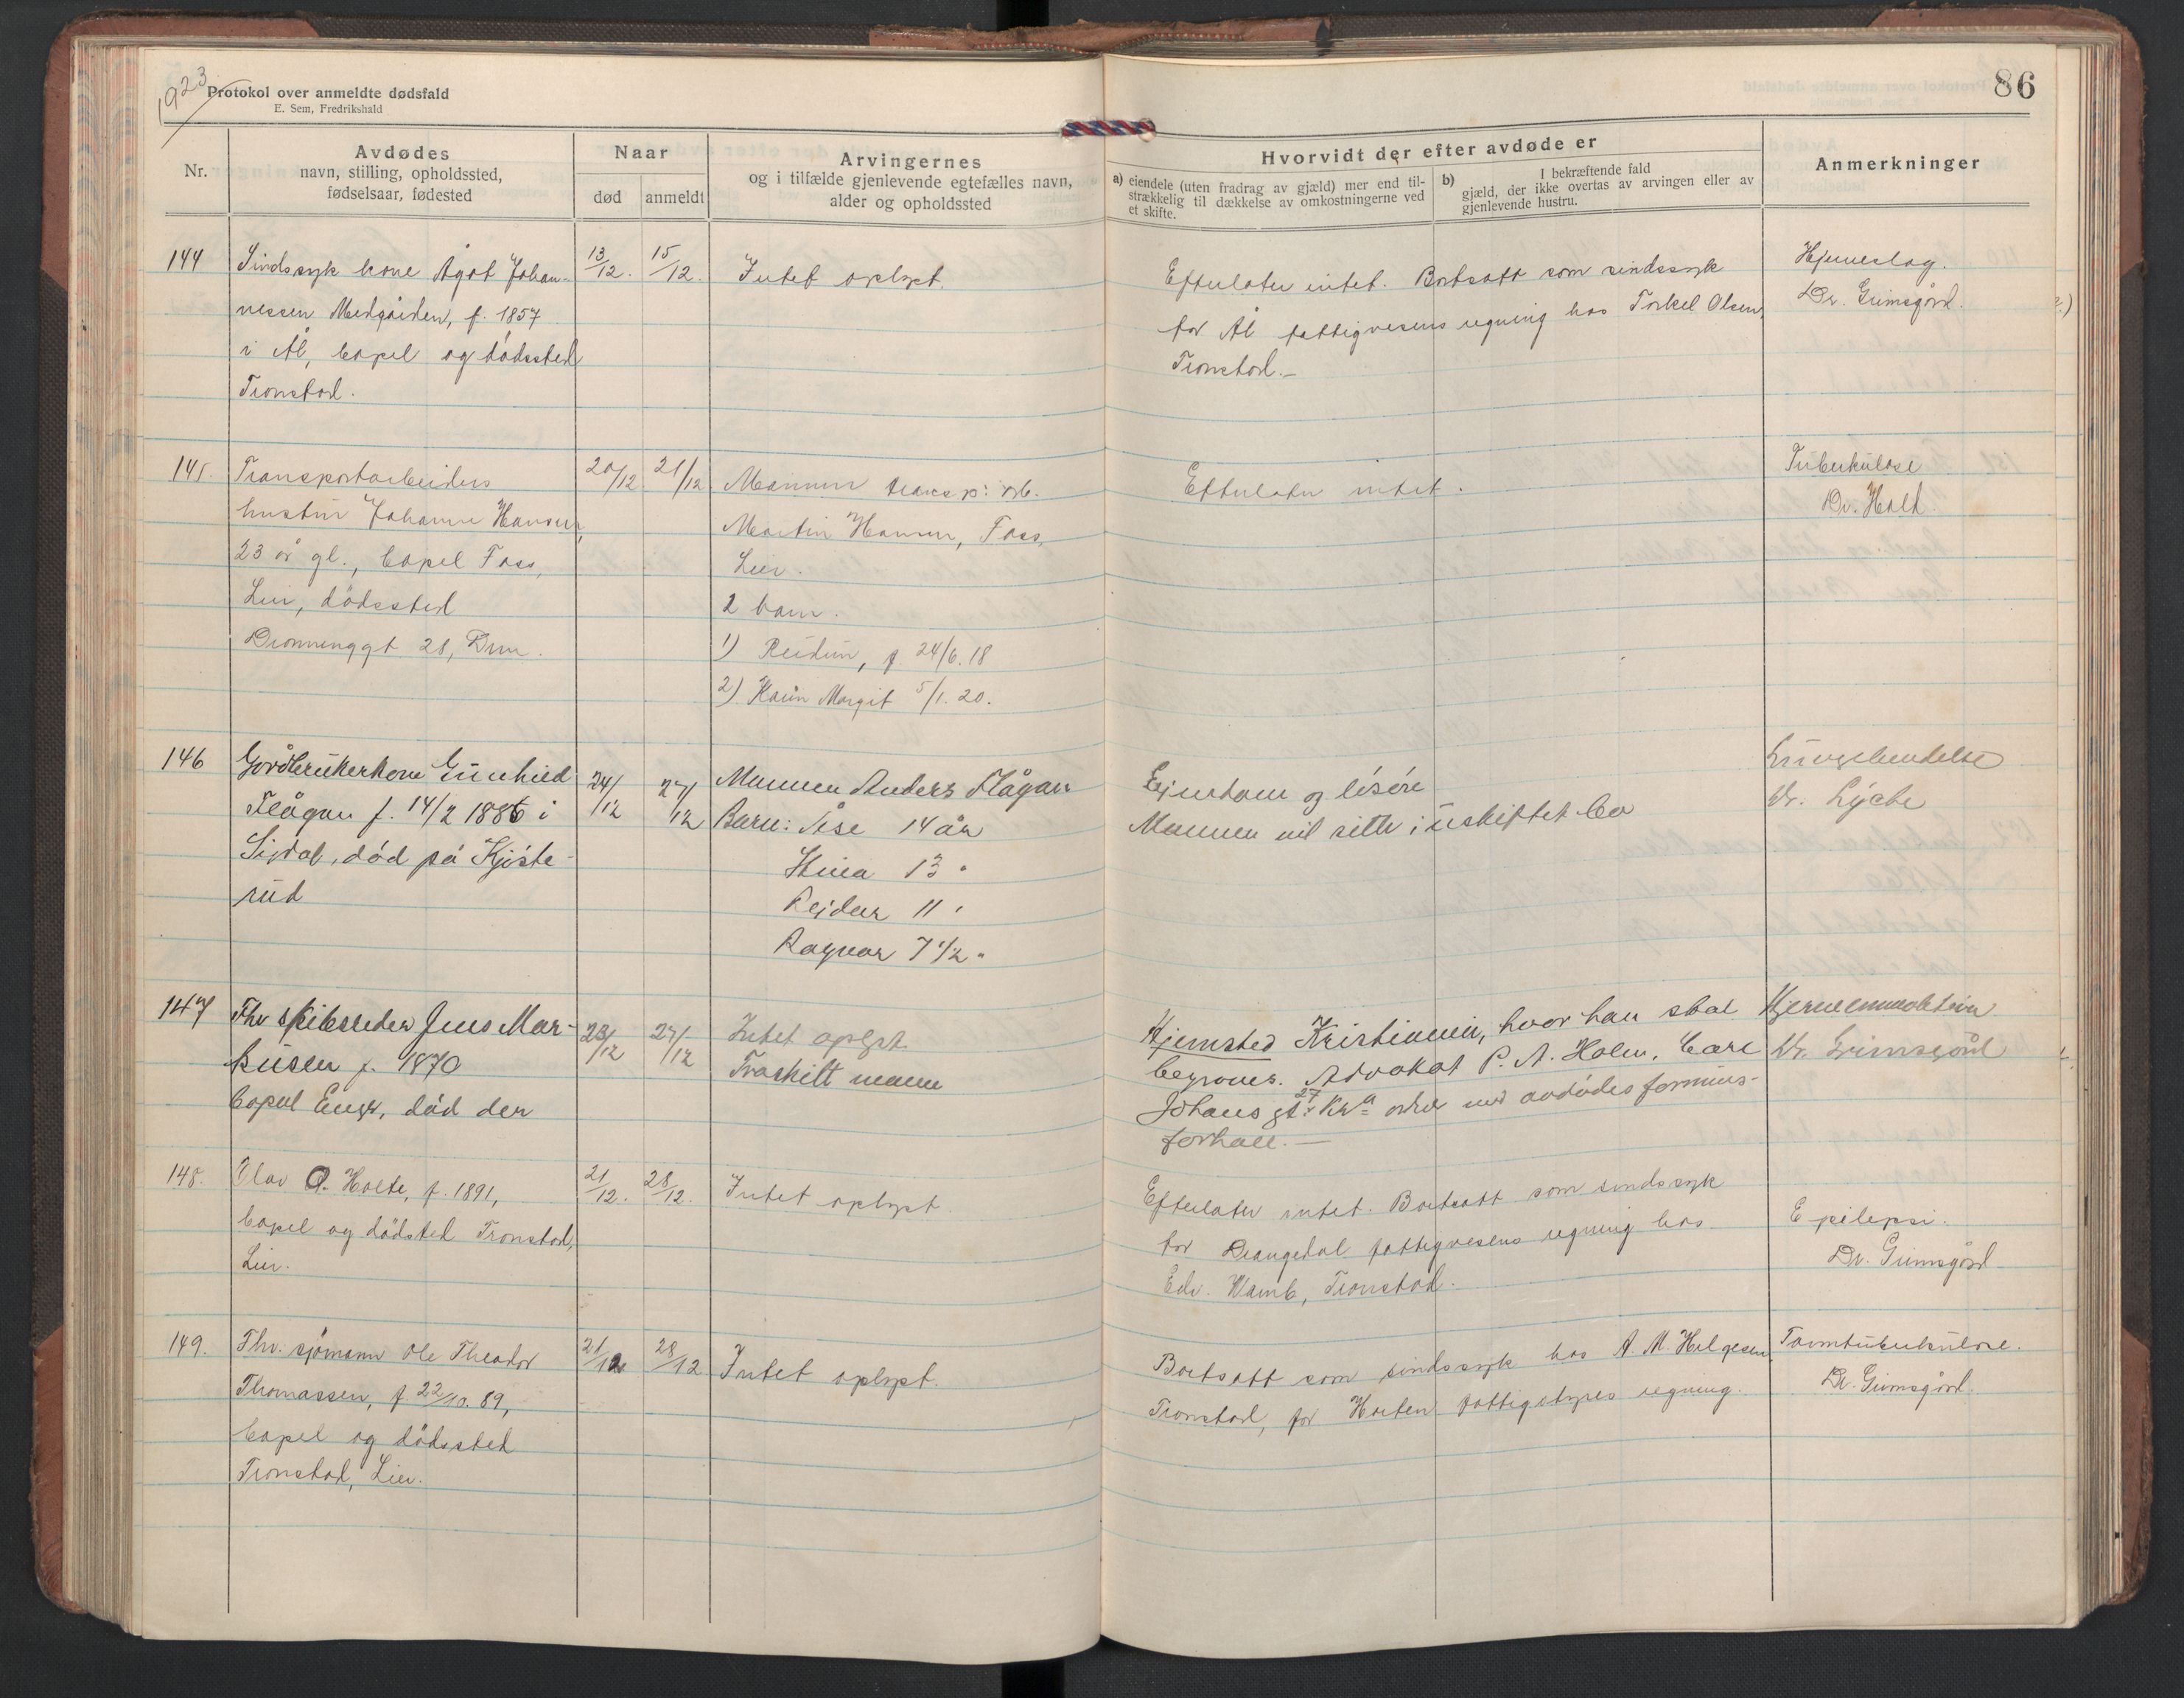 1923
Protokol over anmeldte dødsfald
E. Sem, Fredrikshald
86
Nr.
Avdødes
navn, stilling, opholdssted,
fødselsaar, fødested
Naar
død
anmeldt
Arvingernes
og i tilfælde gjenlevende egtefælles navn,
alder og opholdssted
Hvorvidt der efter avdøde er
a) eiendele (uten fradrag av gjæld) mer end til-
strækkelig til dækkelse av omkostningerne ved
et skifte.
b) I bekræftende fald
gjæld, der ikke overtas av arvingen eller av
gjenlevende hustru.
Anmerkninger
144
Sindssyk kone Ågot Johan-
nessen Medgården, f. 1857
i Ål, bopel og dödssted
Tronstad.
13/12.
15/12.
Intet oplyst.
Efterlater intet. Bortsatt som sindssyk
for Ål fattigvesens regning hos Torkel Olsen,
Tronstad.-
Hjerneslag.
Dr. Grimsgård.
145.
Transportarbeiders
hustru Johanne Hansen,
23 år gl., bopel Foss,
Lier, dödssted
Dronninggt 28, Drm.
20/12
21/12
Mannen transp: arb.
Martin Hansen, Foss,
Lier.
2 barn.
1) Reidun, f. 24/6. 18
2) Karin Margit 5/1. 20.
Efterlater intet.
Tuberkulose
Dr. Holt.
146
Gårdbrukerkone Gunhild
Flågan f. 14/2 1886 i
Sigdal, död på Kjöste-
rud
24/12
27/12
Mannen Anders Flågan
Barn: Åse 14 år
13 "
Reidar 11 "
Ragnar 7 1/2 "
Eiendom og lösöre
Mannen vil sitte i uskiftet bo
Lungebetendelse
Dr. Lyche
147
Fhv skibsreder Jens Mar-
kusen f. 1870
bopel Enger, död der
23/12
27/12
Intet oplyst.
Fraskilt mann
Hjemsted Kristiania, hvor han skal
begraves. Advokat P. A. Holm, Carl
Johans gt. 27 Kra ordner med avdödes formues-
forhold.-
Dr. Grimsgård
148.
Olav O. Holte, f. 1891,
bopel og dödsted Tronstad,
Lier.
21/12.
28/12.
Intet oplyst.
Efterlater intet. Bortsatt som sindssyk
for Drangedal fattigvesens regning hos
Edv. Wamb, Tronstad.
Epilepsi.
Dr. Grimsgård
149.
Fhv. sjömann Ole Theodor
Thomassen, f. 22/10. 89,
bopel og dödssted
Tronstad, Lier.
21/12
28/12
Intet oplyst.
Bortsatt som sindssyk hos A. M. Helgesen,
Tronstad, for Horten fattigstyres regning.
Tarmtuberkulose.
Dr. Grimsgård.